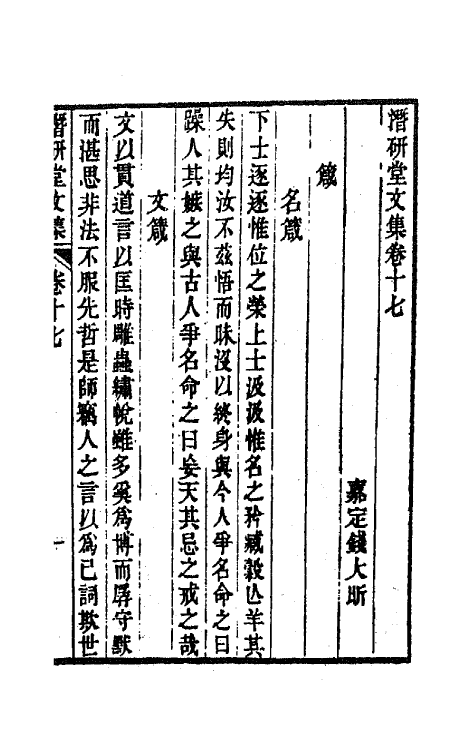 潛研堂文集卷十七
嘉定錢大昕
箴
名箴
下士逐逐惟位之榮上士汲汲惟名之矜臧穀亾羊其
失則均汝不茲悟而昧沒以終身與今人爭名命之曰
躁人其嫉之與古人爭名命之曰妄天其忌之戒之哉
文箴
文以貫道言以匡時雕蟲繡帨雖多奚爲博而孱守默
而湛思非法不服先哲是師竊人之言以爲己詞欺世
潛研堂文集
卷十七
一